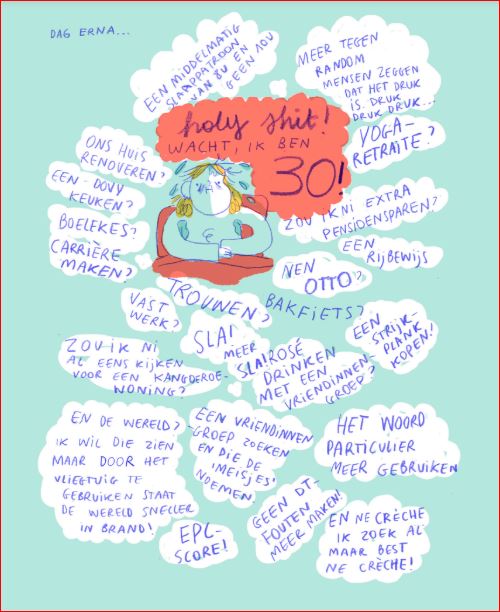 DAG ERNA...
EEN MIDDELMATIG
SLAAPPATROON
VAN 8U EN
GEEN 10U
MEER TEGEN
RANDOM
MENSEN ZEGGEN
DAT HET DRUK
IS. DRUK
DRUK DRUK...
holy shit!
WACHT, IK BEN
30!
YOGA-
RETRAITE?
ONS HUIS
RENOVEREN?
EEN DOVY
KEUKEN?
BOELEKES?
CARRIÈRE
MAKEN?
ZOU IK NI EXTRA
PENSIOENSPAREN?
EEN
RIJBEWIJS
NEN
OTTO?
TROUWEN?
BAKFIETS?
VAST
WERK?
SLA!
MEER
SLA!
EEN
STRIJK-
PLANK
KOPEN!
ZOU IK NI
AL EENS KIJKEN
VOOR EEN KANGOEROE-
WONING?
ROSÉ
DRINKEN
MET EEN
VRIENDINNEN-
GROEP?
EN DE WERELD?
IK WIL DIE ZIEN
MAAR DOOR HET
VLIEGTUIG TE
GEBRUIKEN STAAT
DE WERELD SNELLER
IN BRAND!
EEN VRIENDINNEN
-GROEP ZOEKEN
EN DIE DE
'MEISJES'
NOEMEN.
HET WOORD
PARTICULIER
MEER GEBRUIKEN
EPC-
SCORE!
GEEN DT-
FOUTEN
MEER MAKEN!
EN NE CRÈCHE
IK ZOEK AL
MAAR BEST
NE CRÈCHE!